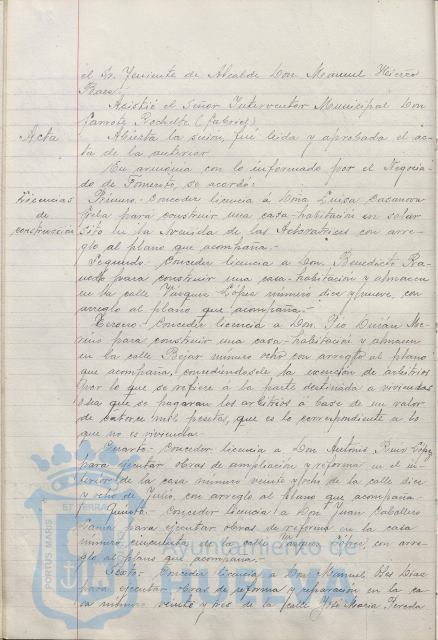 el Sr. Teniente de Alcalde Don Manuel
Asistió el Señor Interventor Municipal Don
Garrote Rochelt (Gabriel)
Acta
Abierta la sesión, fué leida y aprobada el ac-
ta de la anterior
En armonía con lo informado por el Negocia-
do de Fomento, se acordó:
Licencias
de
construcción
Primero.- Conceder licencia á Doña Luisa Casanova
para construir una casa-habitación en solar
sito en la Avenida de las Adoratrices con arre-
glo al plano que acompaña.-
Segundo.- Conceder licencia a Don Benedicto
para construir una casa-habitación y almacen
en la calle Vázquez López número diez y nueve, con
arreglo al plano que acompaña.-
Tercero.- Conceder licencia a Don Pío Durán Me-
rino para construir una casa-habitación y almacen
en la calle Béjar número ocho con arreglo al plano
que acompaña, concediendosele la exención de arbitrios
por lo que se refiere á la parte destinada a viviendas
sea que se pagaran los arbitrios á base de un valor
de catorce mil pesetas, que es lo correspondiente a lo
que no es vivienda.-
Cuarto.- Conceder licencia a Don Antonio Ruiz López
para ejecutar obras de ampliación y reforma en el in-
terior de la casa número veinte y ocho de la calle diez
y ocho de Julio, con arreglo al plano que acompaña.-
Quinto.- Conceder licencia a Don Juan Caballero
para ejecutar obras de reforma en la casa
número cincuenta de la calle Vázquez López, con arre-
glo al plano que acompaña.-
Sexto.- Conceder licencia a Don Manuel Díaz
para ejecutar obras de reforma y reparación en la ca-
sa número veinte y tres de la calle José María Pereda
PORTUS MARIS
ET TERRAE
Ayuntamiento de